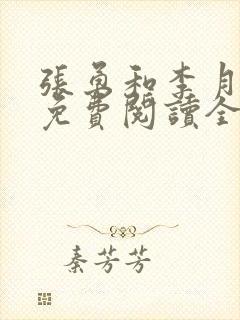 張勇和李月
免費閱讀全
秦芳芳